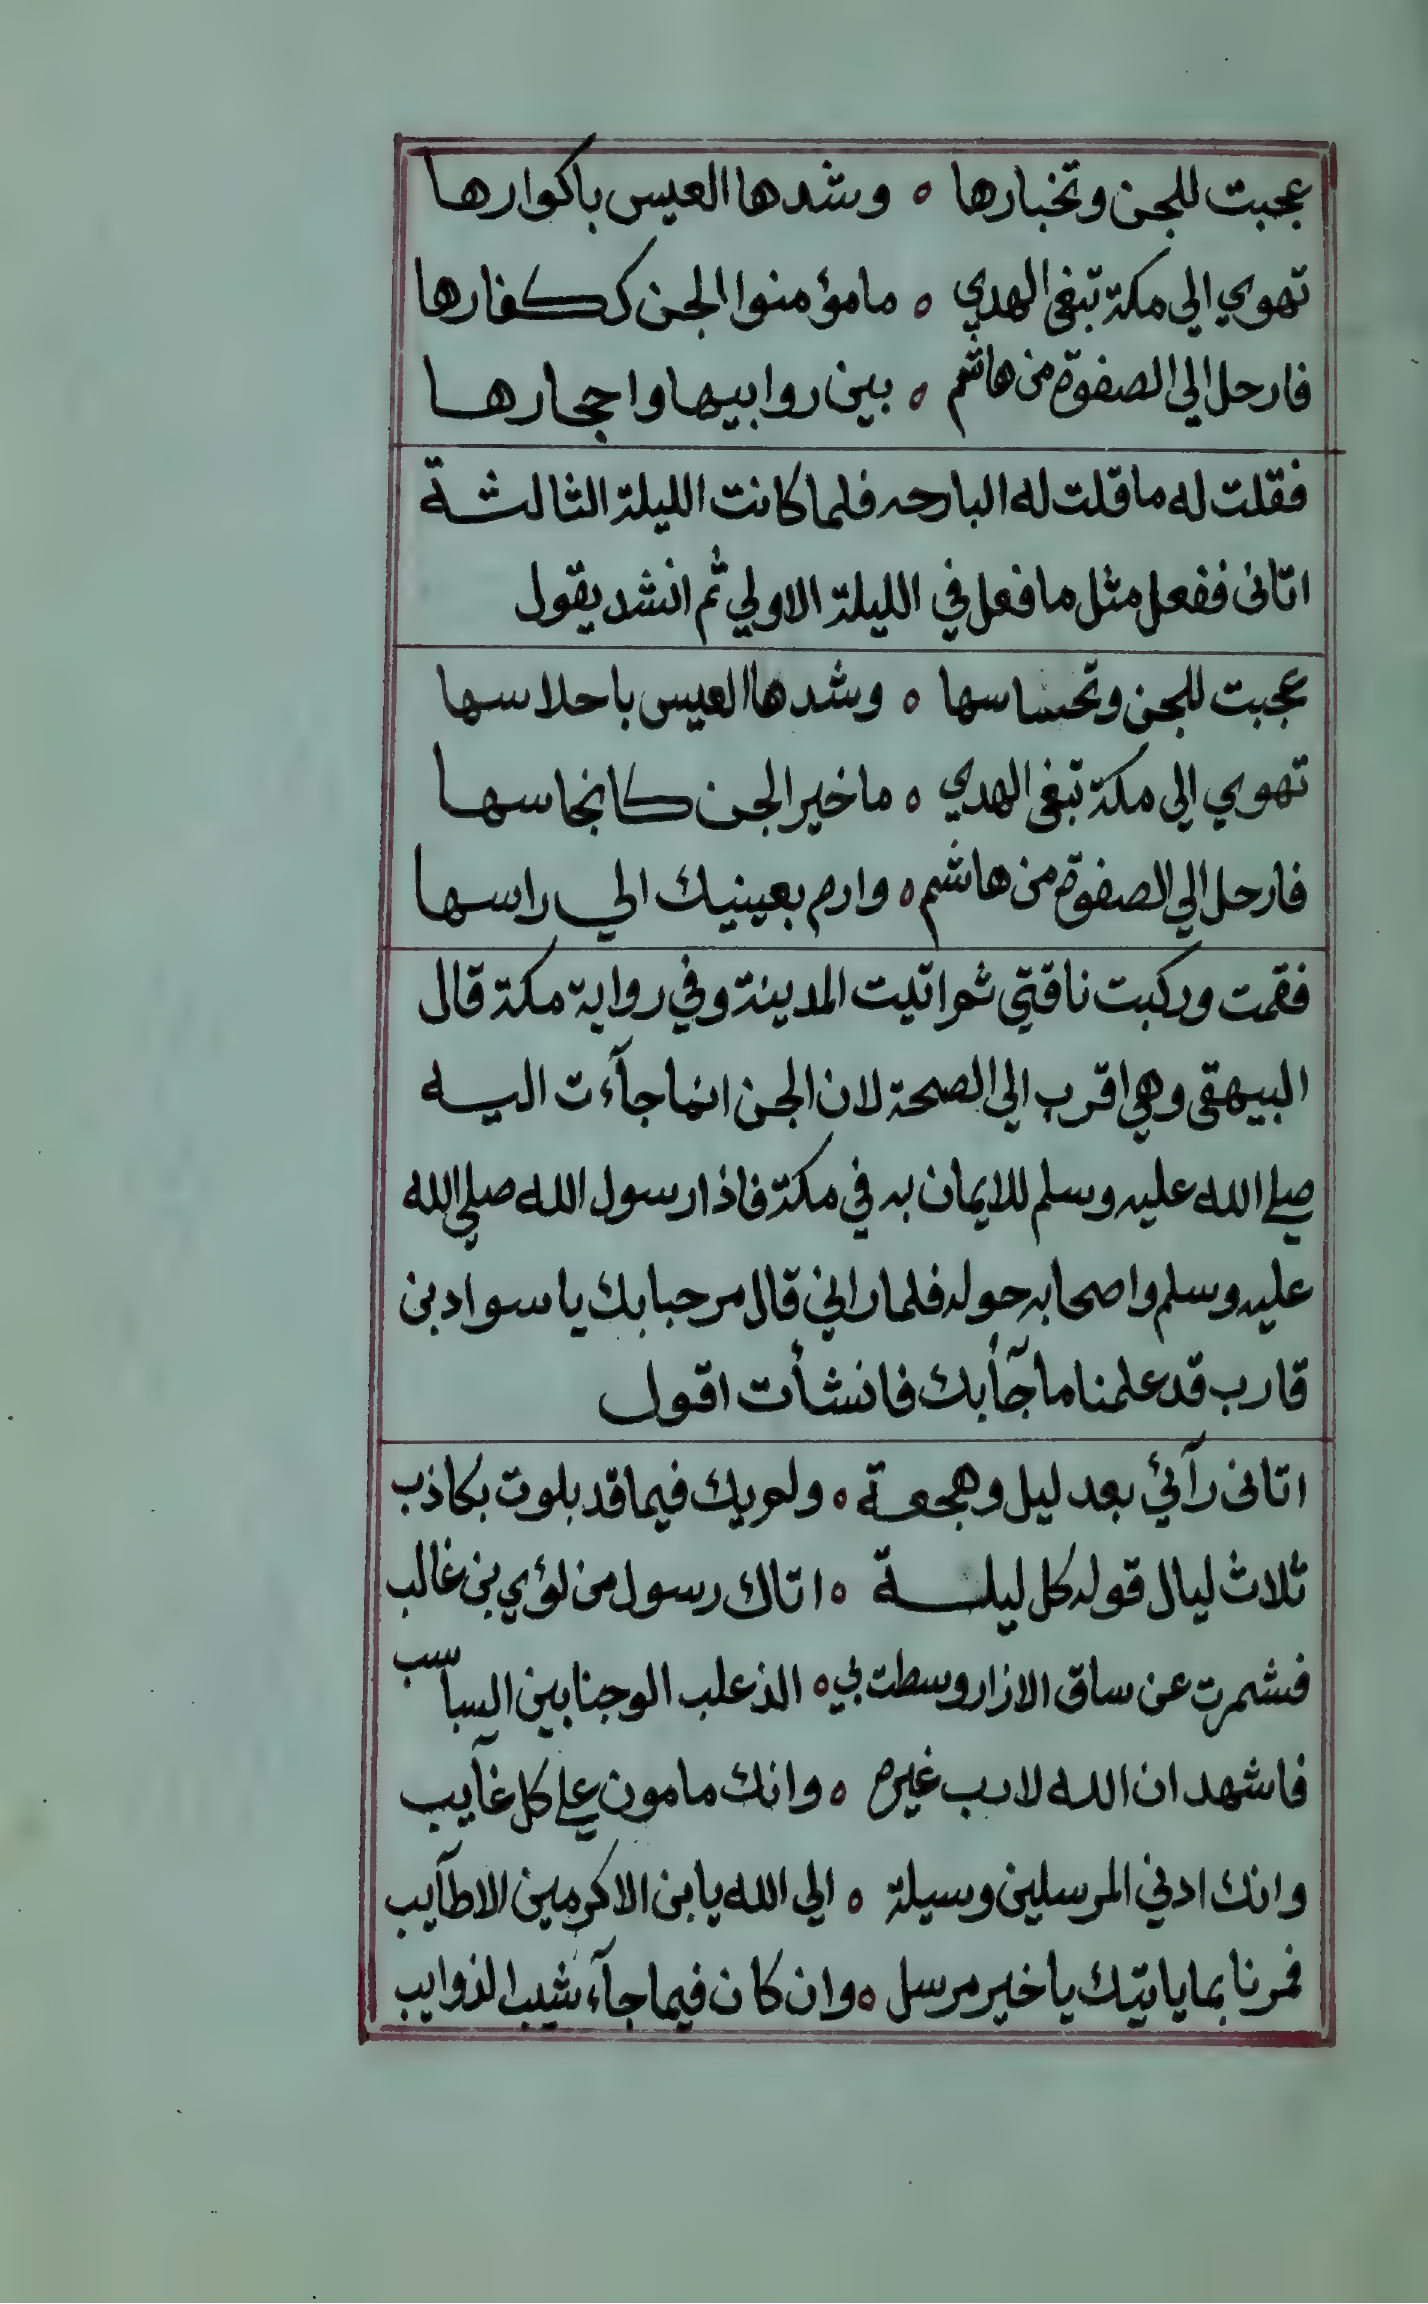 عجبت للجن وتخبارها ه وشدها العيس باكوارها
تهوي الي مكة تبغى الهدي ه مامؤمنوا الجن ككفارها
فارحل الي الصفوة من هاشم ه بين روابيها واحجارها
فقلت له ماقلت له البارحه فلما كانت الليلة الثالثة
اتانى ففعل مثل مافعل في الليلة الاولي ثم انشد يقول
عجبت للجن وتحساسها ه وشدها العيس باحلاسها
تهوي الي مكة تبغى الهدي ه ماخير الجن كانجاسها
فارحل الي الصفوة من هاشم ه وارم بعينيك الي راسها
فقمت وركبت ناقتي ثم اتيت المدينة وفي رواية مكة قال
البيهقى وهي اقرب الي الصحة لان الجن انما جآءت اليه
صلي الله عليه وسلم للايمان به في مكة فاذا رسول الله صلي الله
عليه وسلم واصحابه حوله فلما راني قال مرحبا بك يا سواد بن
قارب قد علمنا ما جآ بك فانشأت اقول
اتانى رآئي بعد ليل وهجعة ه ولم يك فيما قد بلوت بكاذب
ثلاث ليال قوله كل ليلة ه اتاك رسول من لؤي بن غالب
فشمرت عن ساق الازار وسطت بي ه الذعلب الوجنا بين السباسب
فاشهد ان الله لارب غيره ه وانك مامون علي كل غآيب
وانك ادني المرسلين وسيلة ه الي الله يابن الاكرمين الاطآيب
فمرنا بما ياتيك يا خير مرسل ه وان كان فيما جآء شيب الذوايب